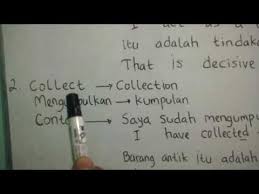 itu adalah tindaka
That is decisive
2. Collect → Collection
kumpulan
→ Saya sudah mengumpu
I have collected
Barang antik itu adalah